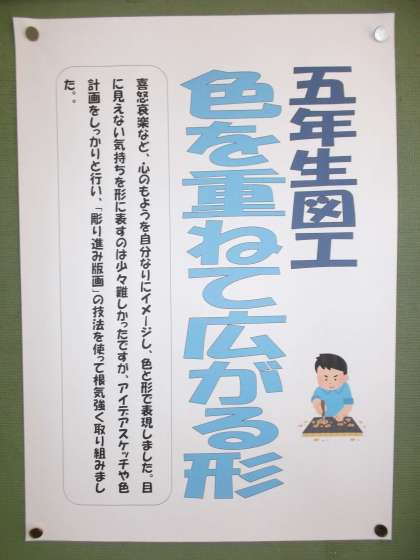 五年生図工
色を重ねて広がる形
喜怒哀楽など、心のもようを自分なりにイメージし、色と形で表現しました。目
に見えない気持ちを形に表すのは少々難しかったですが、アイデアスケッチや色
計画をしっかりと行い、「彫り進み版画」の技法を使って根気強く取り組みまし
た。。